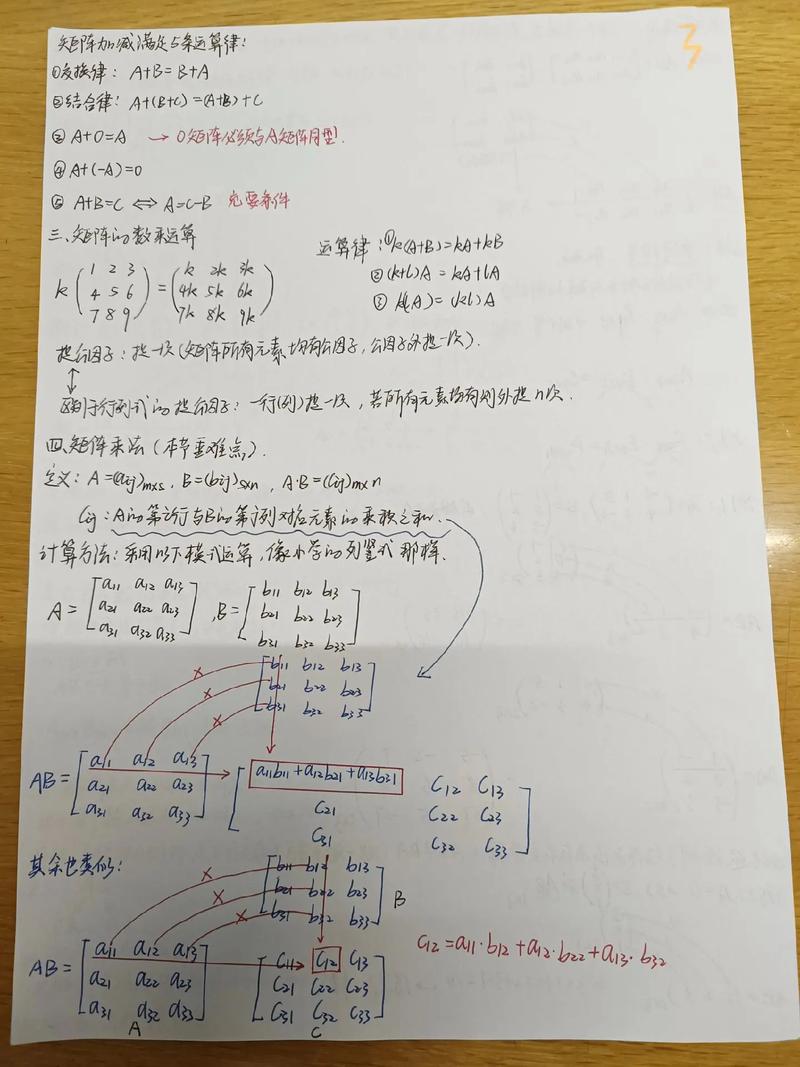 3
矩阵加减满足5条运算律:
①交换律: A+B=B+A
②结合律: A+(B+C)=(A+B)+C
③ A+O=A → O矩阵必须与A矩阵同型.
④ A+(-A)=0
⑤ A+B=C ⇔ A=C-B 充要条件
三、矩阵的数乘运算
运算律: ①k(A+B)=kA+kB
②(k+l)A = kA+lA
③ k(lA) = (kl)A
k
1 2 3
4 5 6
7 8 9
=
k 2k 3k
4k 5k 6k
7k 8k 9k
提公因子: 提一次(矩阵所有元素均有公因子,公因子外提一次).
↕
区别于行列式的提公因子: 一行(列)提一次, 若所有元素均有则外提n次.
四、矩阵乘法(本节重难点).
定义: A=(aij)m×s, B=(bij)s×n, A·B=(Cij)m×n
Cij: A的第i行与B的第j列对应元素的乘积之和.
计算方法: 采用以下模式运算, 像小学的列竖式那样.
A =
a11 a12 a13
a21 a22 a23
a31 a32 a33
, B =
b11 b12 b13
b21 b22 b23
b31 b32 b33
b11 b12 b13
b21 b22 b23
b31 b32 b33
× × ×
AB =
a11 a12 a13
a21 a22 a23
a31 a32 a33
a11b11+a12b21+a13b31 C12 C13
C21 C22 C23
C31 C32 C33
其余也类似:
b11 b12 b13
b21 b22 b23
b31 b32 b33
B
× × ×
AB =
a11 a12 a13
a21 a22 a23
a31 a32 a33
A
C11 C12 C13
C21 C22 C23
C31 C32 C33
C
C12=a11·b12+a12·b22+a13·b32